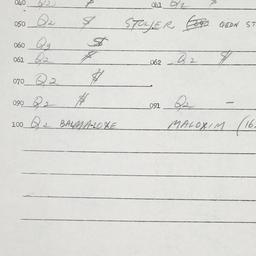 040 Q2 $ 041 Q2 $
050 Q2 $ STOLJER GEON ST
060 Q2 $
061 Q2 $ 062 Q2 $
070 Q2 $
090 Q2 $ 091 Q2 -
100 Q2 MALOXIM (16